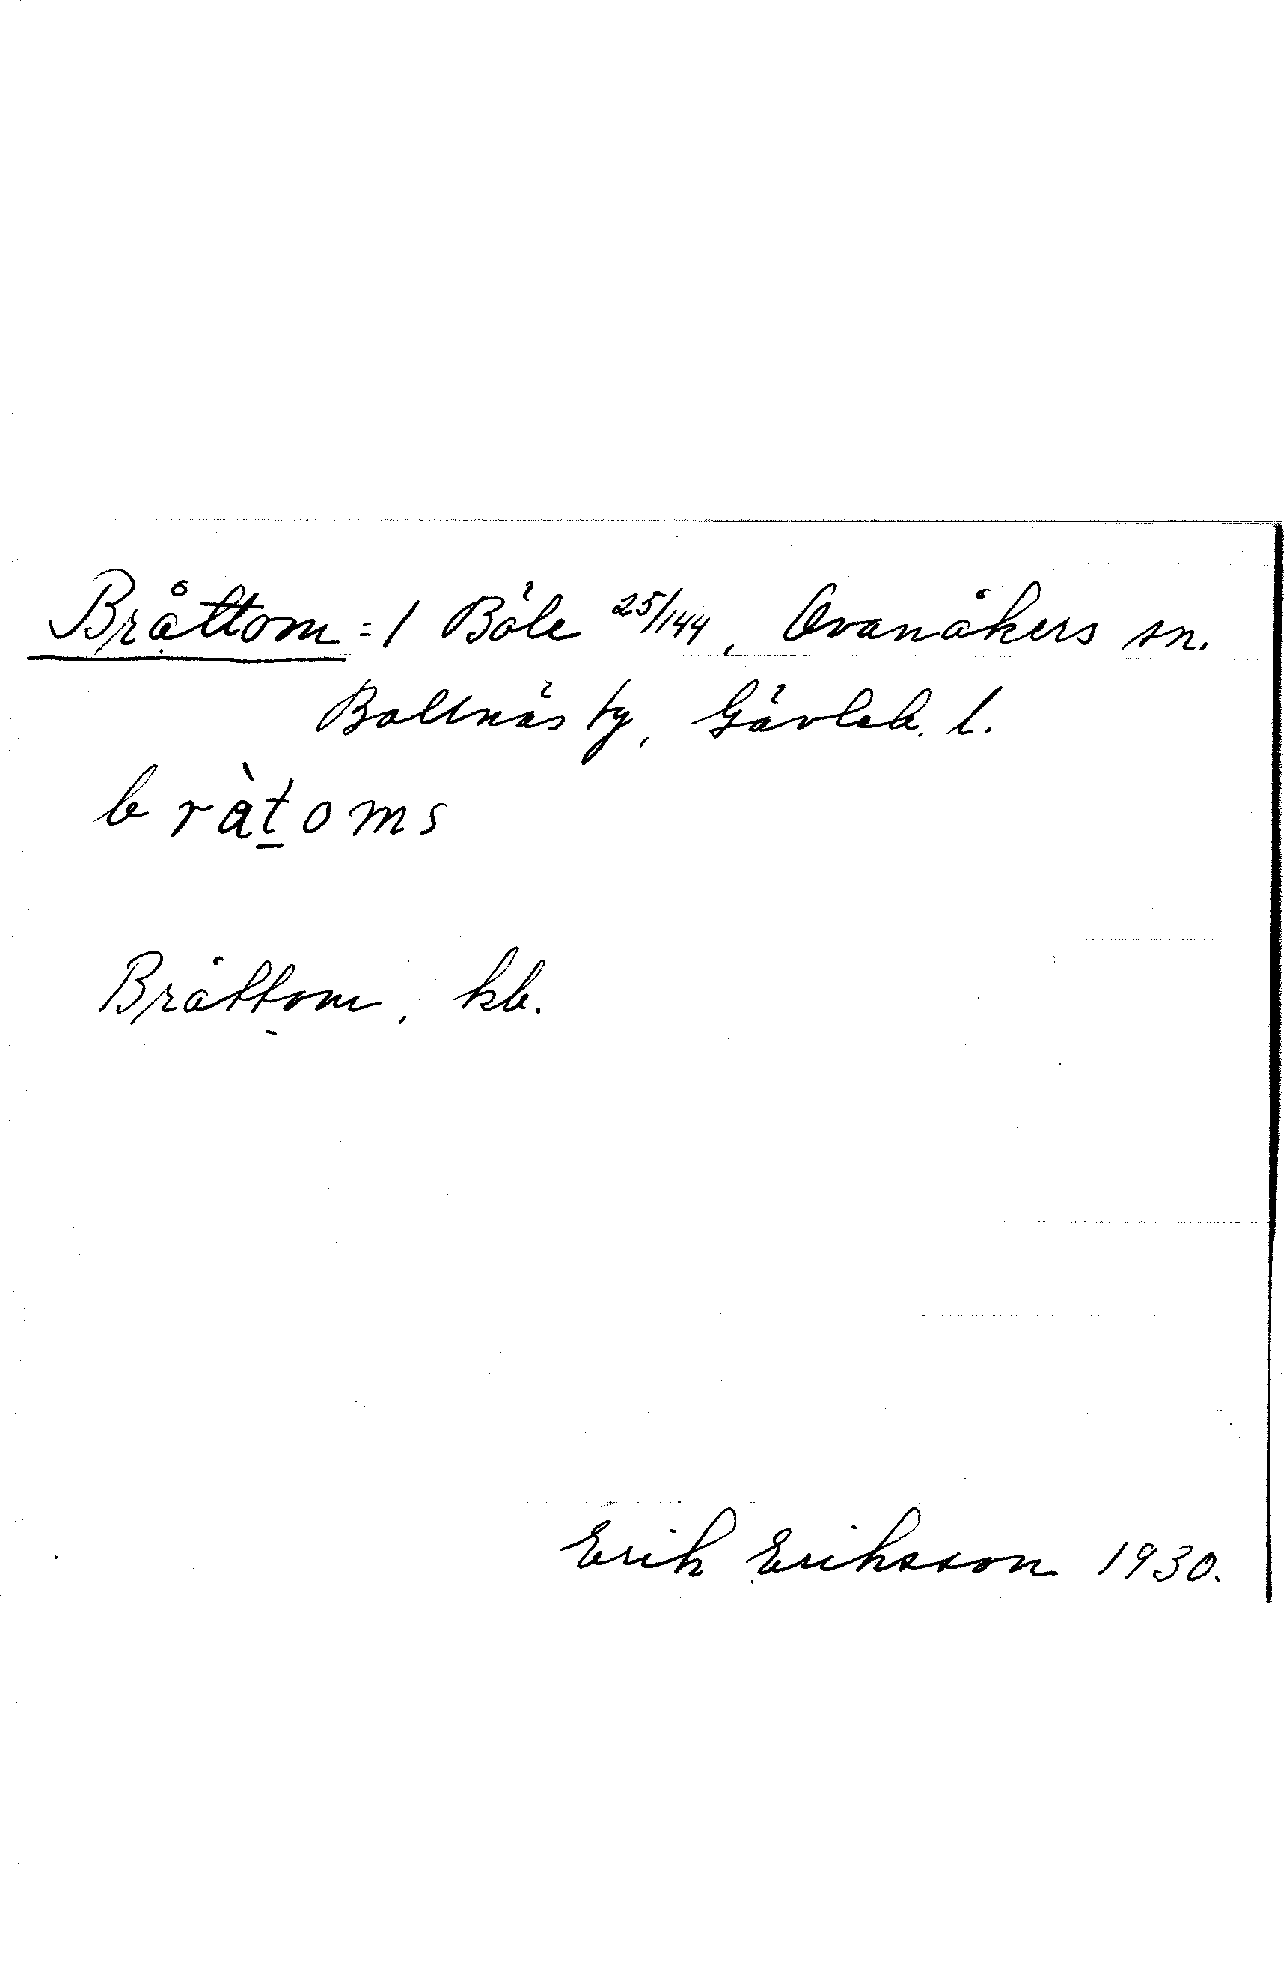 Bråttom = 1 Böle 25/144, Ovanåkers sn.
Bollnäs tg, Gävleb. l.
bràt̲oms
Bråttom, kb.
Erik Eriksson 1930.